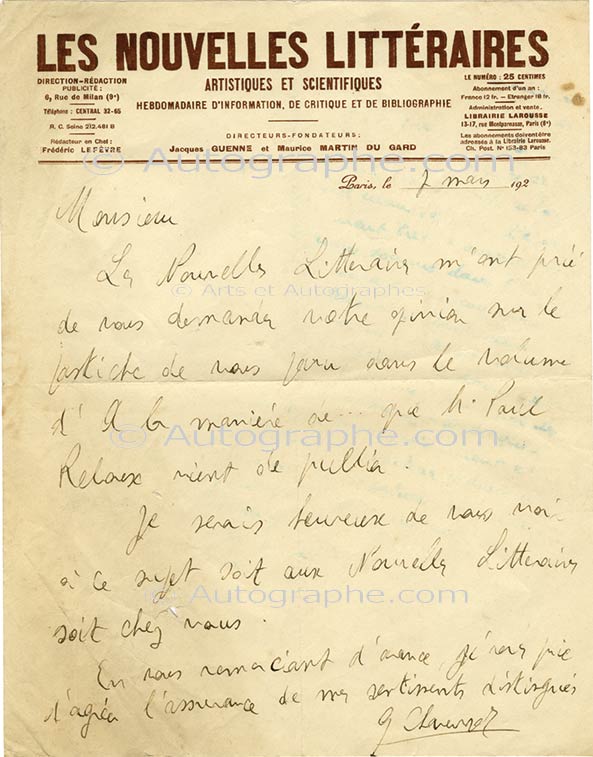 LES NOUVELLES LITTÉRAIRES
ARTISTIQUES ET SCIENTIFIQUES
HEBDOMADAIRE D'INFORMATION, DE CRITIQUE ET DE BIBLIOGRAPHIE
DIRECTION-RÉDACTION
PUBLICITÉ :
6, Rue de Milan (9e)
Téléphone : CENTRAL 32-65
R. C. Seine 272.481 B
Rédacteur en Chef :
Frédéric LEFÈVRE
DIRECTEURS-FONDATEURS :
Jacques GUENNE et Maurice MARTIN DU GARD
LE NUMÉRO : 25 CENTIMES
Abonnement d'un an :
France 12 fr. — Etranger 18 fr.
Administration et vente :
LIBRAIRIE LAROUSSE
13-17, rue Montparnasse, Paris (6e)
Les abonnements doivent être
adressés à la Librairie Larousse.
Ch. Post. N° 153-83 Paris
© Autographe.com
Paris, le 7 mars 192
Monsieur
Les Nouvelles Litteraires m'ont prié
© Arts et Autographes
de vous demander votre opinion sur le
pastiche de vous paru dans le volume
d' A la manière de ... que M. Paul
© Autographe.com
Reboux vient de publier.
Je serais heureux de vous voir
à ce sujet soit aux Nouvelles Litteraires
© Autographe.com
soit chez vous.
En vous remerciant d'avance, je vous prie
d'agréer l'assurance de mes sentiments distingués
G
© Autographe.com